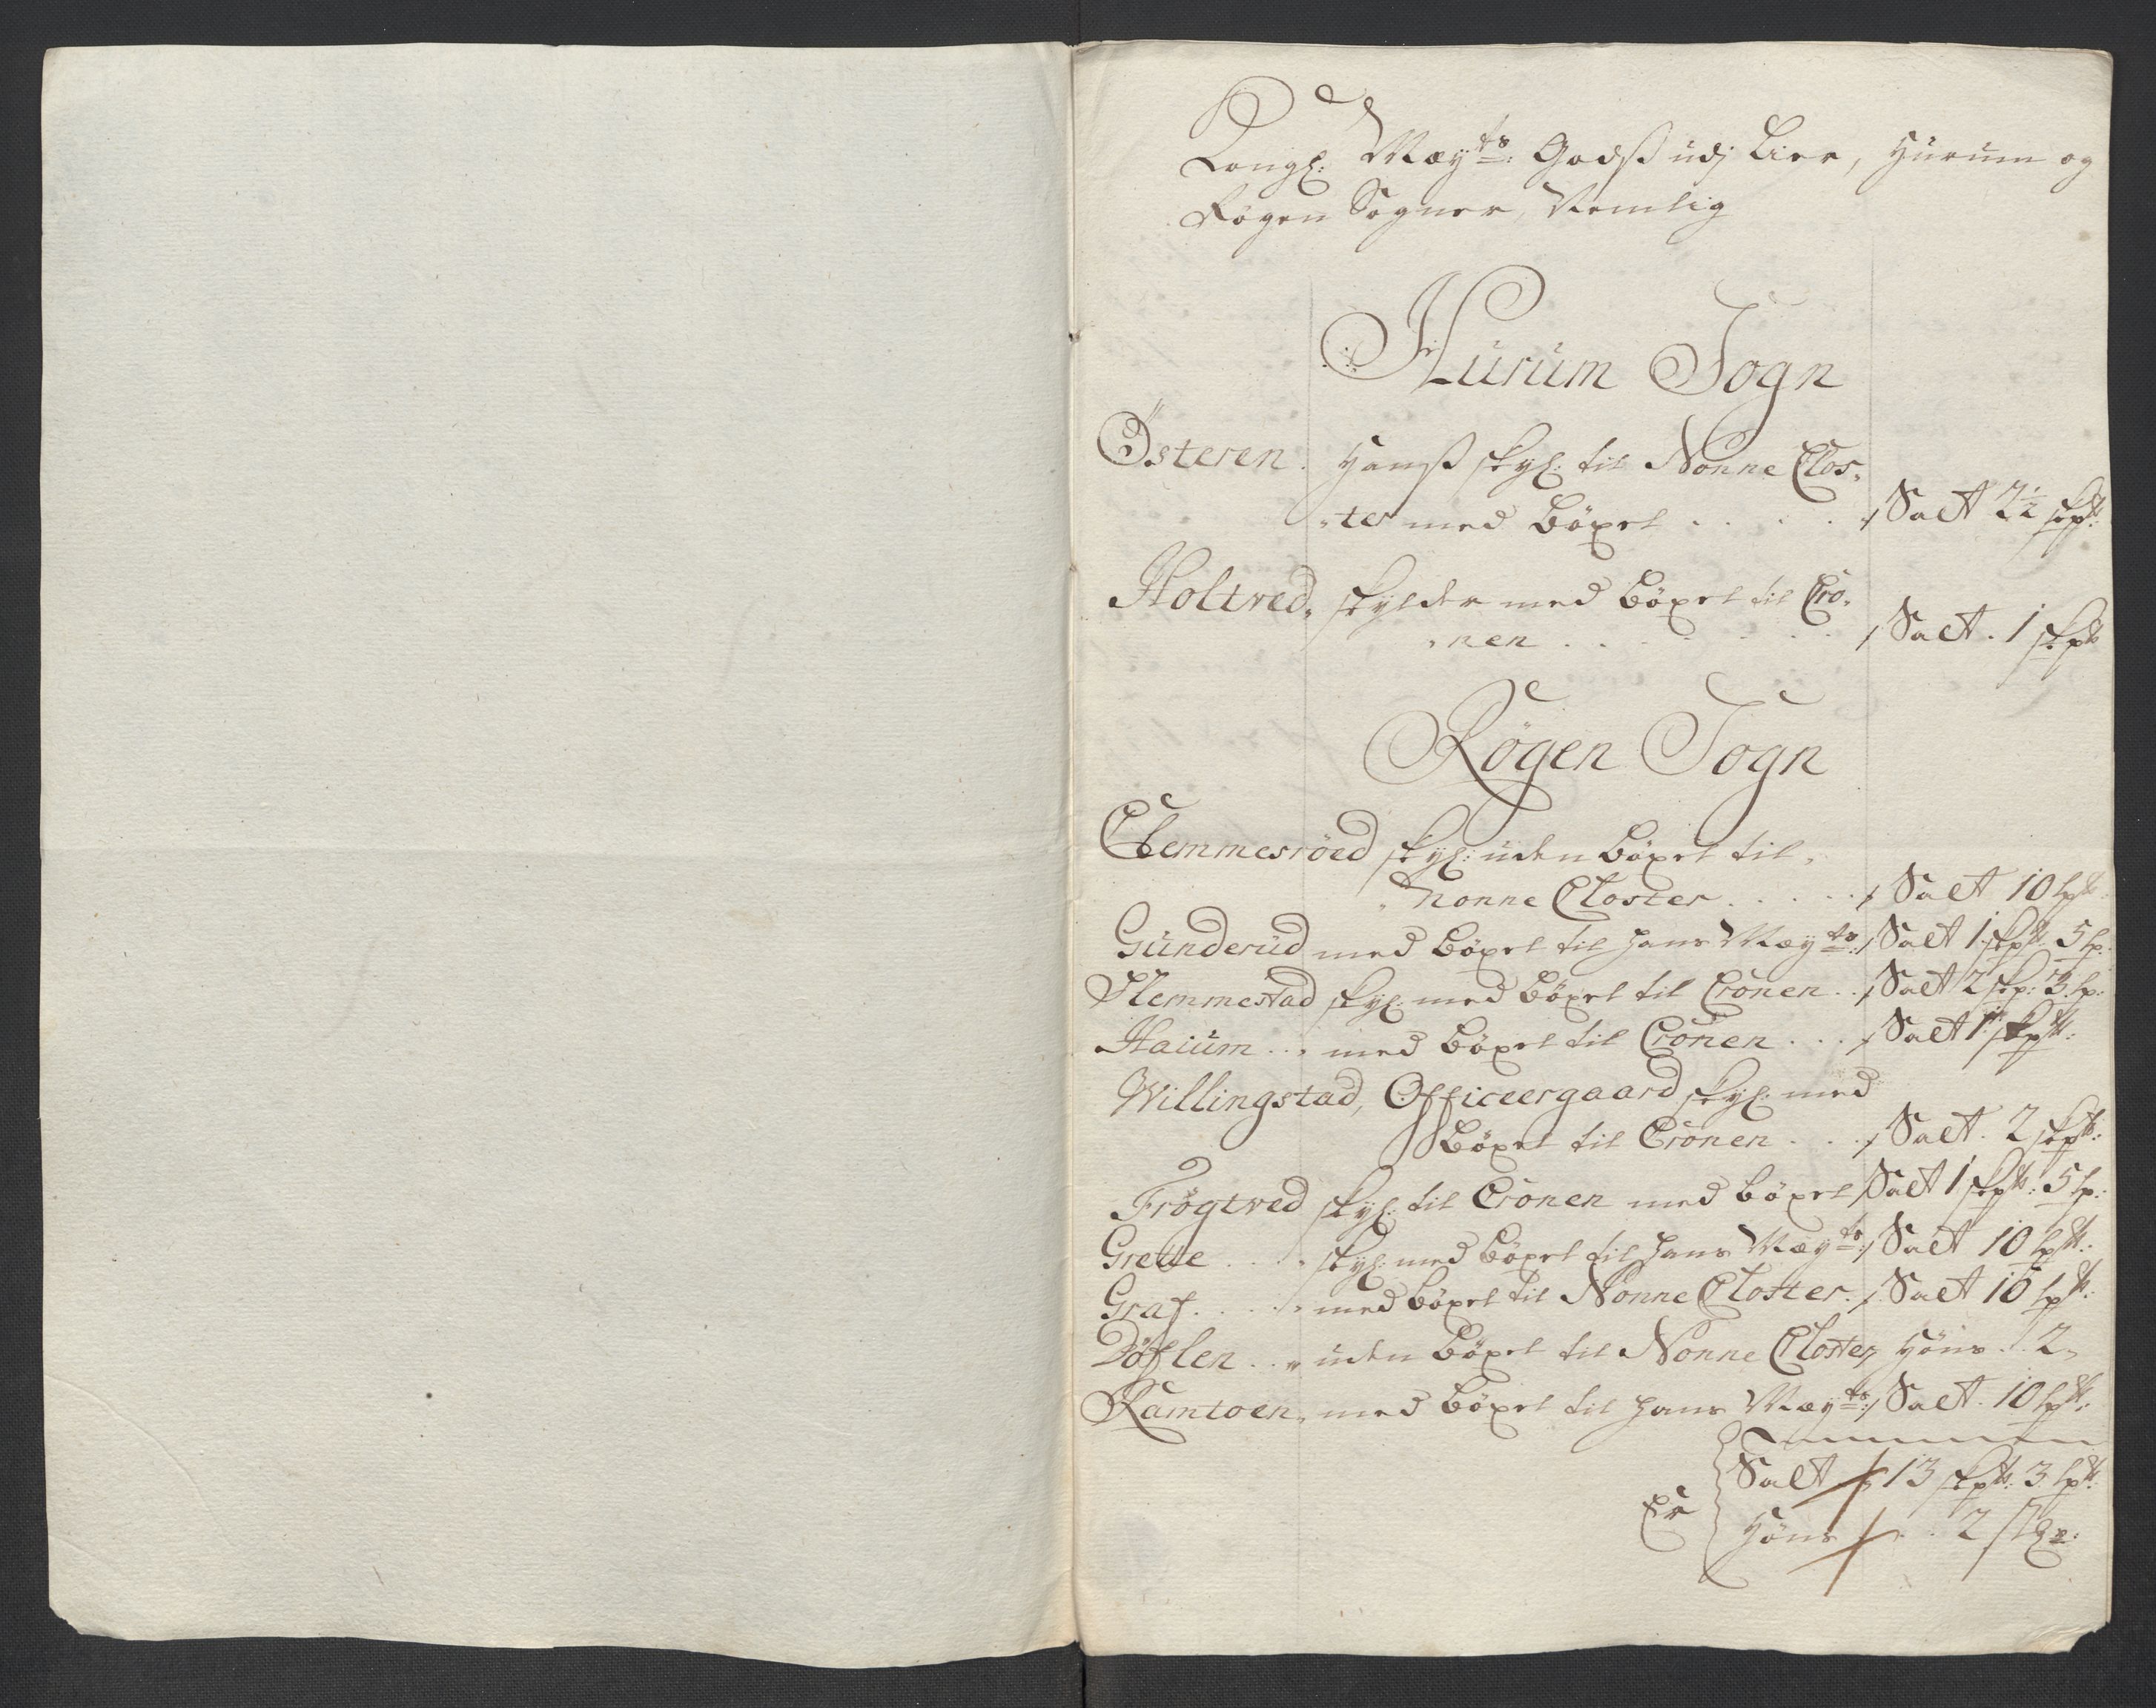 Kongl: Mayts: Godß udj Lier, Hurum og
Røgen Sogner, Nemlig
Hurum Sogn
Østeren. Hanß skyl: til Nonne Clos„
„ter med böxel . . . . . Salt 2½ skp℔:
Holtved„ skylder med böxel til Cro„
„nen . . . . . . . Salt . 1 skp℔
Røgen Sogn
Clemmesröed skyl: uden böxel til„
„Nonne Closter . . . . . Salt 10 lp℔.
Gunderud med böxel til hans Mayts: Salt 1 skp℔ 5 lp:
Slemmestad skyl: med böxel til Cronen . . Salt 2 skp: 3 lp:
Haium . . „ med böxel til Cronen . . . Salt 1 skp℔:
Willingstad, Officeergaard skyl: med
böxel til Cronen . . . Salt . 2 skp℔:
Frøgtved skyl: til Cronen med böxel Salt 1 skp℔: 5 lp:
Grette . . . „ skyl: med böxel til hans Mayts: Salt 10 lp℔:
Graf . . . . „ med böxel til Nonne Closter. Salt 10 lp℔:
Döflen . . „ uden böxel til Nonne Closter, Höns . . 2„
Ramtoen„ med böxel til hans Mayts: Salt . 10 lp℔:
Salt 13 skp℔: 3 lp℔:
Er
Höns . . 2 st